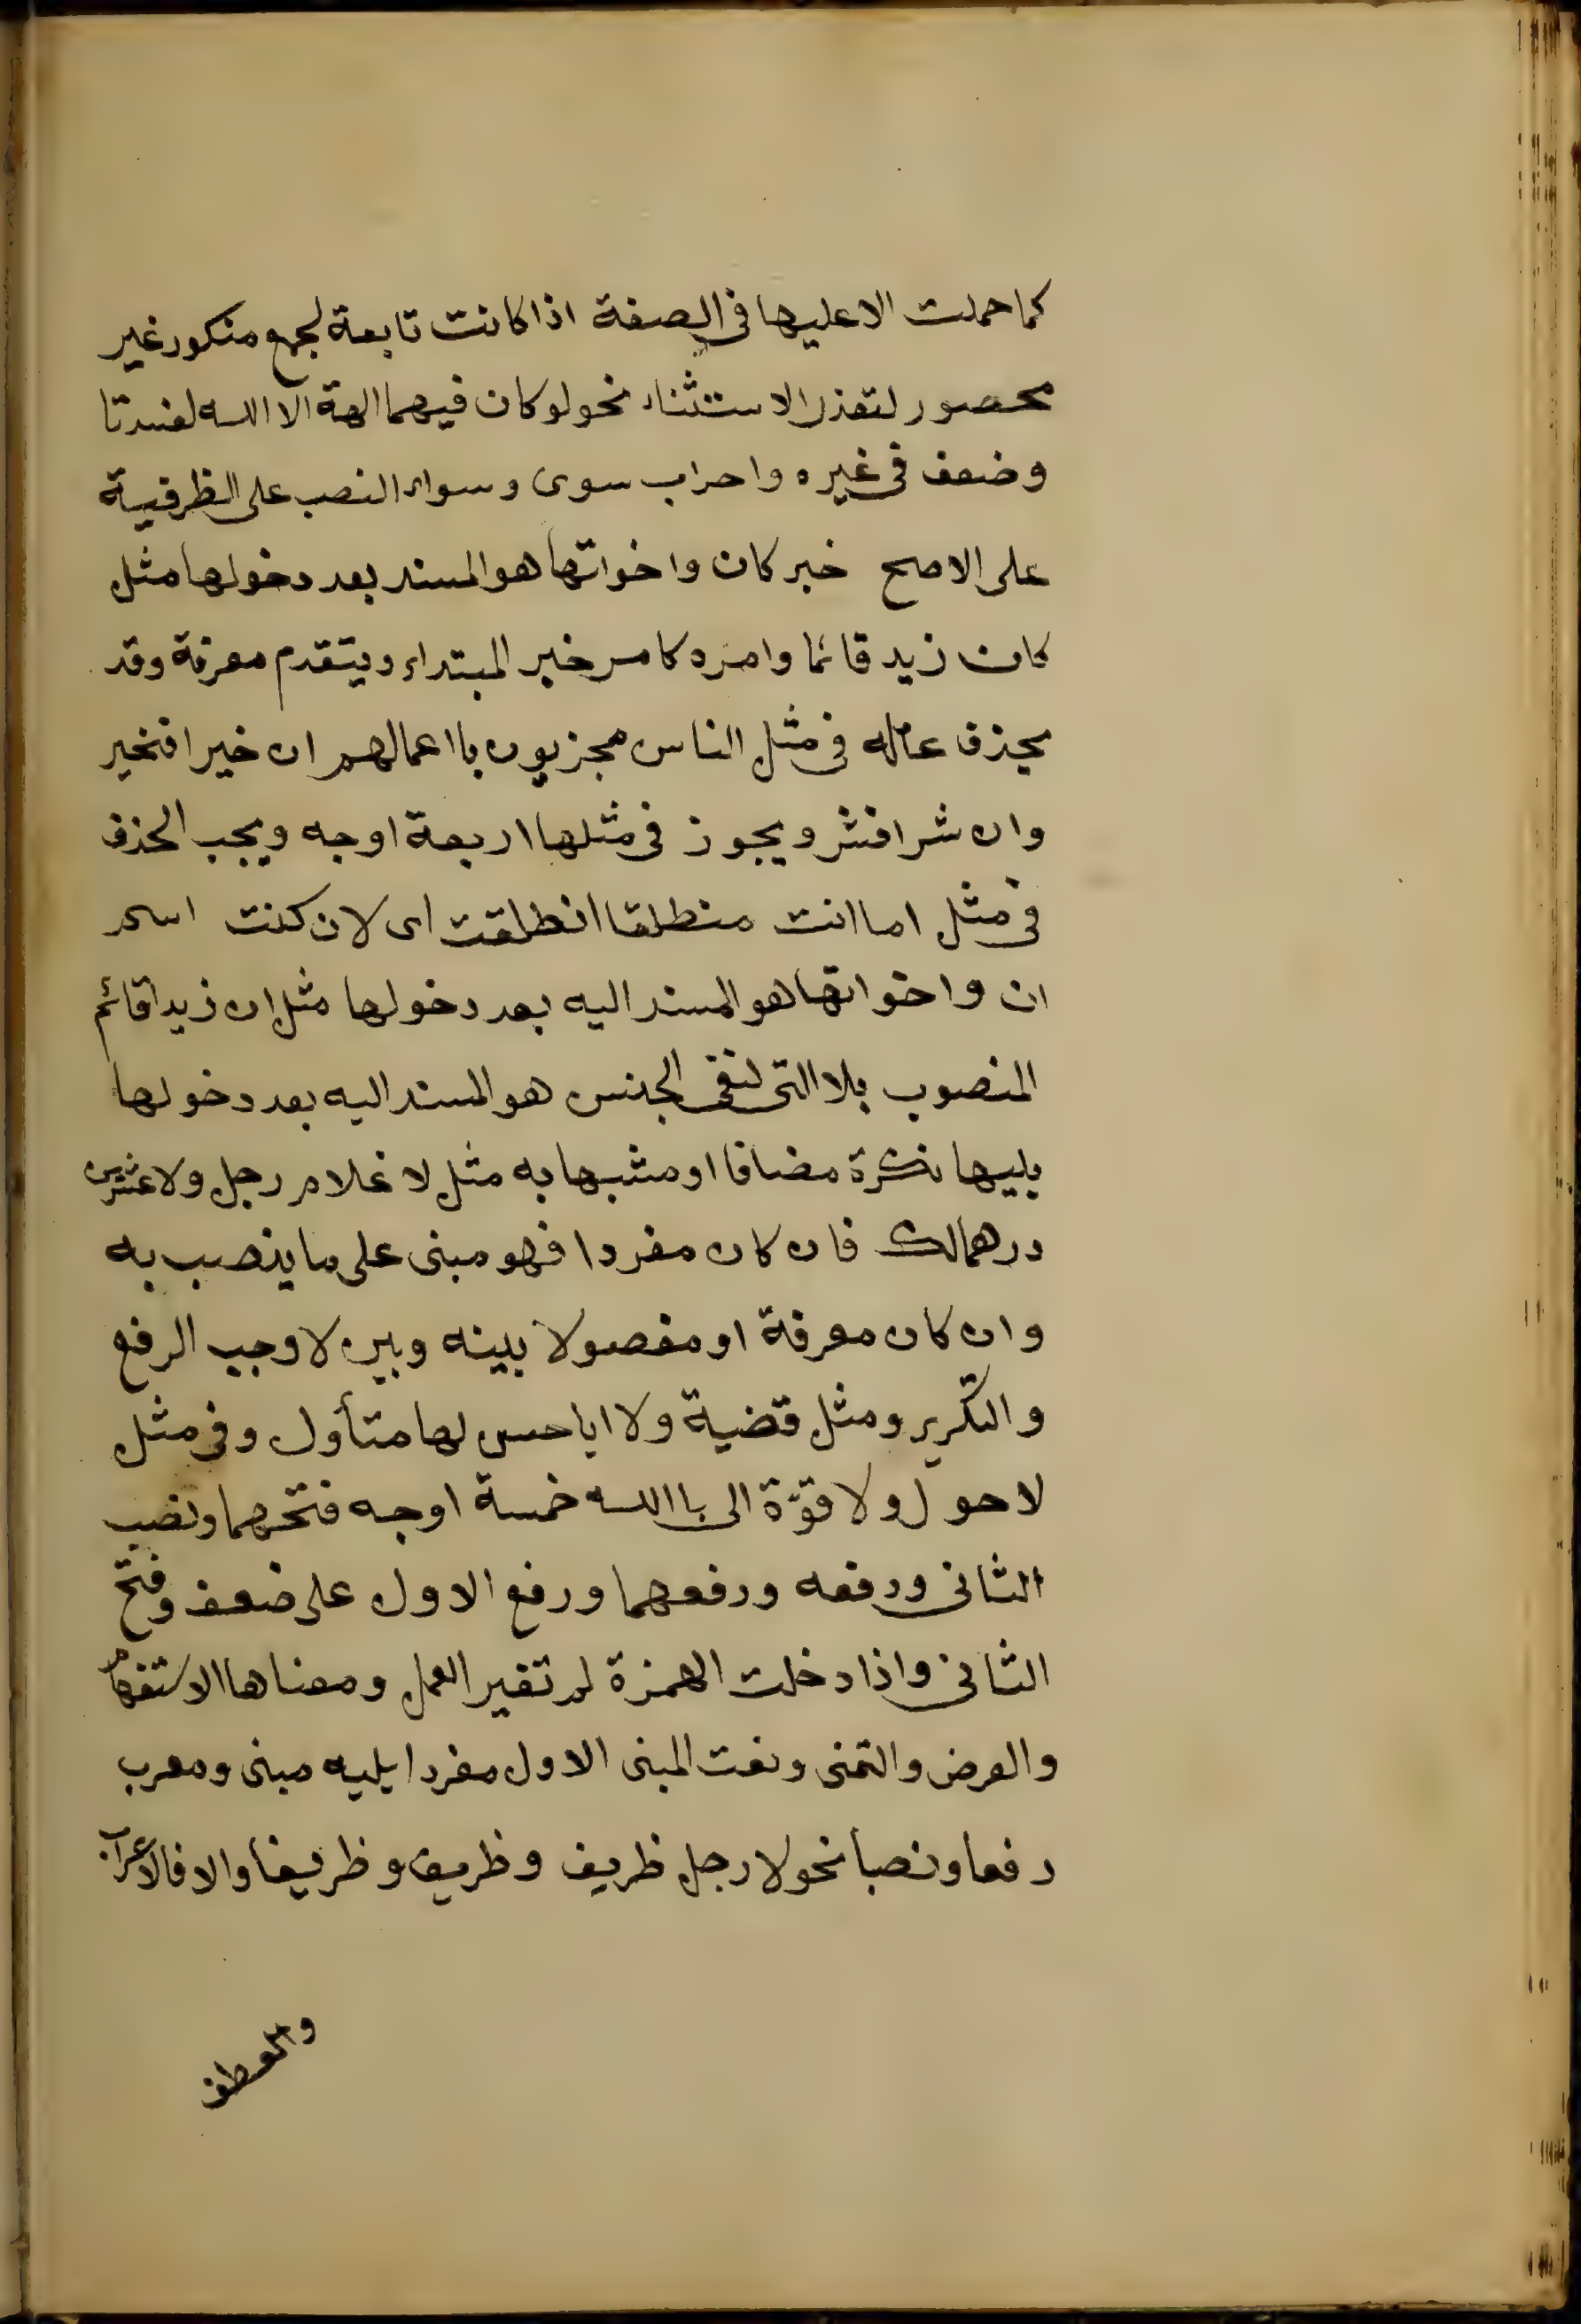 كما حملت الا عليها فى الصفة اذا كانت تابعة لجمع منكور غير
محصور لتعذر الاستثناء نحو لو كان فيهما الهة الا الله لفسدتا
وضعف فى غيره واعراب سوى وسواء النصب على الظرفية
على الاصح خبر كان واخواتها هو المسند بعد دخولها مثل
كان زيد قائما وامره كامر خبر المبتداء ويتقدم معرفة وقد
يحذف عامله فى مثل الناس مجزيون با اعمالهم ان خيرا فخير
وان شرا فشر ويجوز فى مثلها اربعة اوجه ويجب الحذف
فى مثل اما انت منطلقا انطلقت اى لان كنت اسم
ان واخواتها هو المسند اليه بعد دخولها مثل ان زيدا قائم
المنصوب بلا التى لنفى الجنس هو المسند اليه بعد دخولها
يليها نكرة مضافا او مشبها به مثل لا غلام رجل ولا عشرين
درهما لك فان كان مفردا فهو مبنى على ما ينصب به
وان كان معرفة او مفصولا بينه وبين لا وجب الرفع
والتكرير ومثل قضية ولا ابا حسن لها متأول وفى مثل
لا حول ولا قوّة الى با الله خمسة اوجه فتحهما ونصب
الثانى ورفعه ورفعهما ورفع الاول على ضعف وفتح
الثانى واذا دخلت الهمزة لم تغير العمل ومعناها الاستفهام
والعرض والتمنى ونعت المبنى الاول مفردا يليه مبنى ومعرب
رفعا ونصبا نحو لا رجل ظريف وظريف وظريفا والا فالاعراب
والعطف